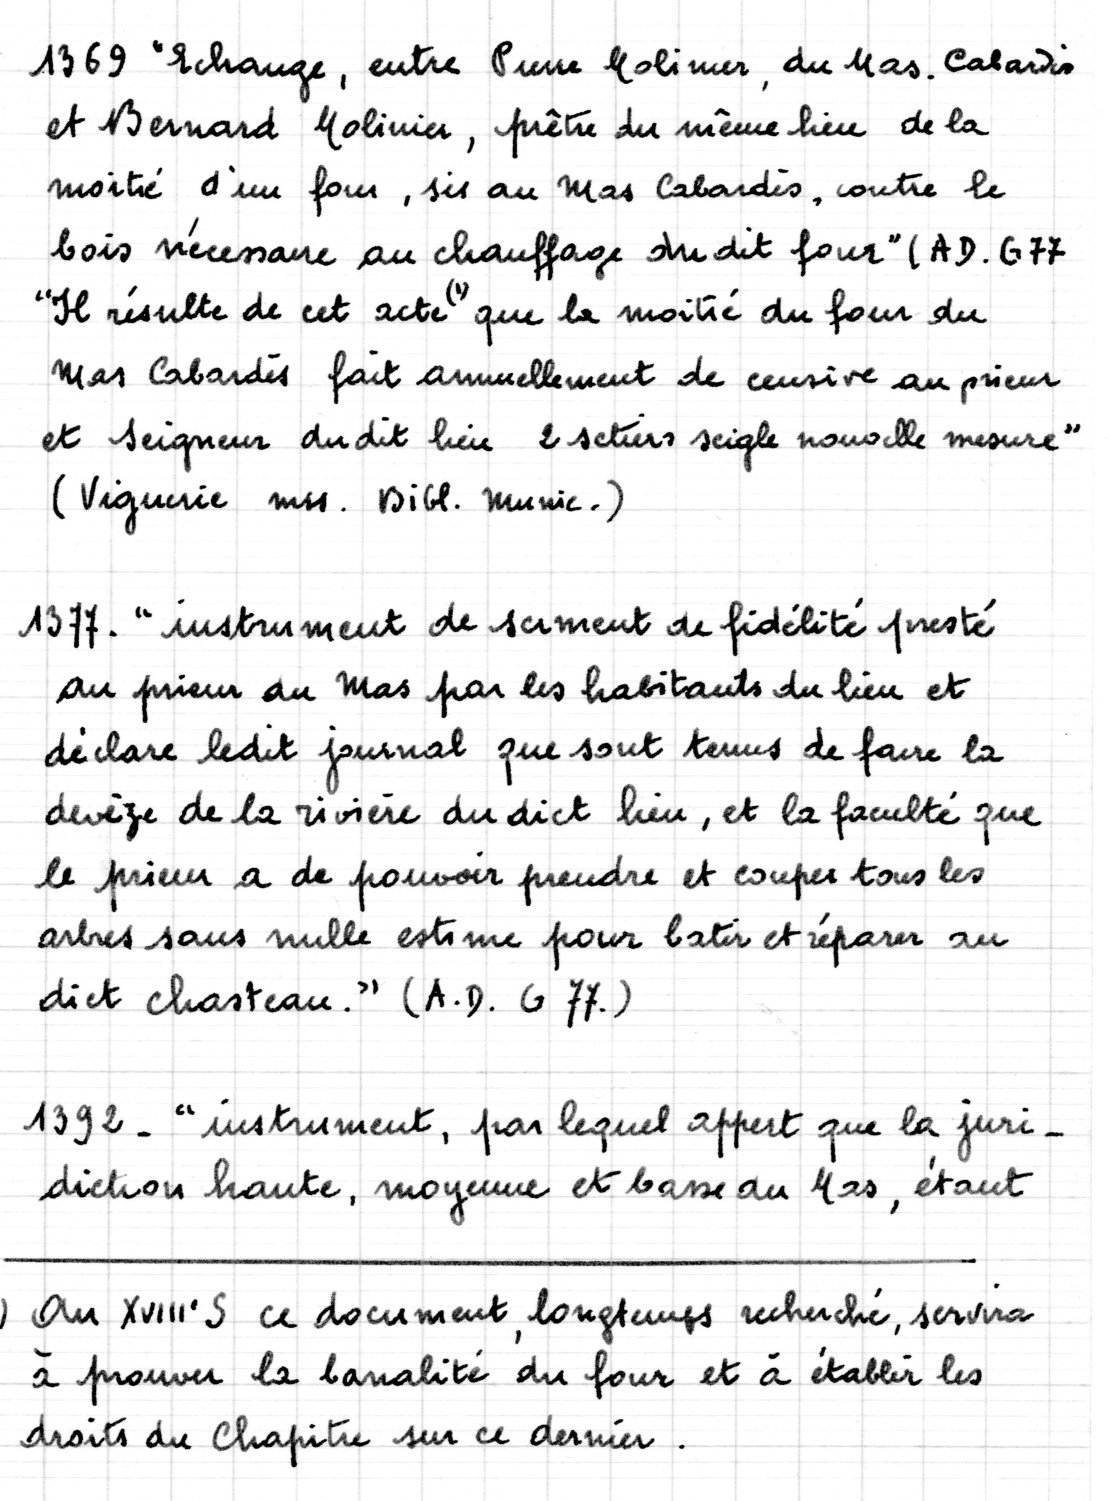 1369 "Echange, entre Pierre Molinier, du Mas. Cabardès
et Bernard Molinier, prêtre du même lieu de la
moitié d'un four, sis au Mas Cabardès, contre le
bois nécessaire au chauffage du dit four" (AD. G 77
"Il résulte de cet acte (1) que la moitié du four du
Mas Cabardès fait annuellement de censive au prieur
et Seigneur du dit lieu 2 setiers seigle nouvelle mesure"
(Viguerie mss. Bibl. Munic.)
1377. "instrument de serment de fidélité presté
au prieur du Mas par les habitants du lieu et
déclare ledit journal que sont tenus de faire la
devèze de la rivière du dict lieu, et la faculté que
le prieur a de pouvoir prendre et couper tous les
arbres sans nulle estime pour batir et réparer au
dict chasteau." (A.D. G 77.)
1392 - "instrument, par lequel appert que la juri-
diction haute, moyenne et basse du Mas, étant
) Au XVIII° S ce document, longtemps recherché, servira
à prouver la banalité du four et à établir les
droits du Chapitre sur ce dernier.